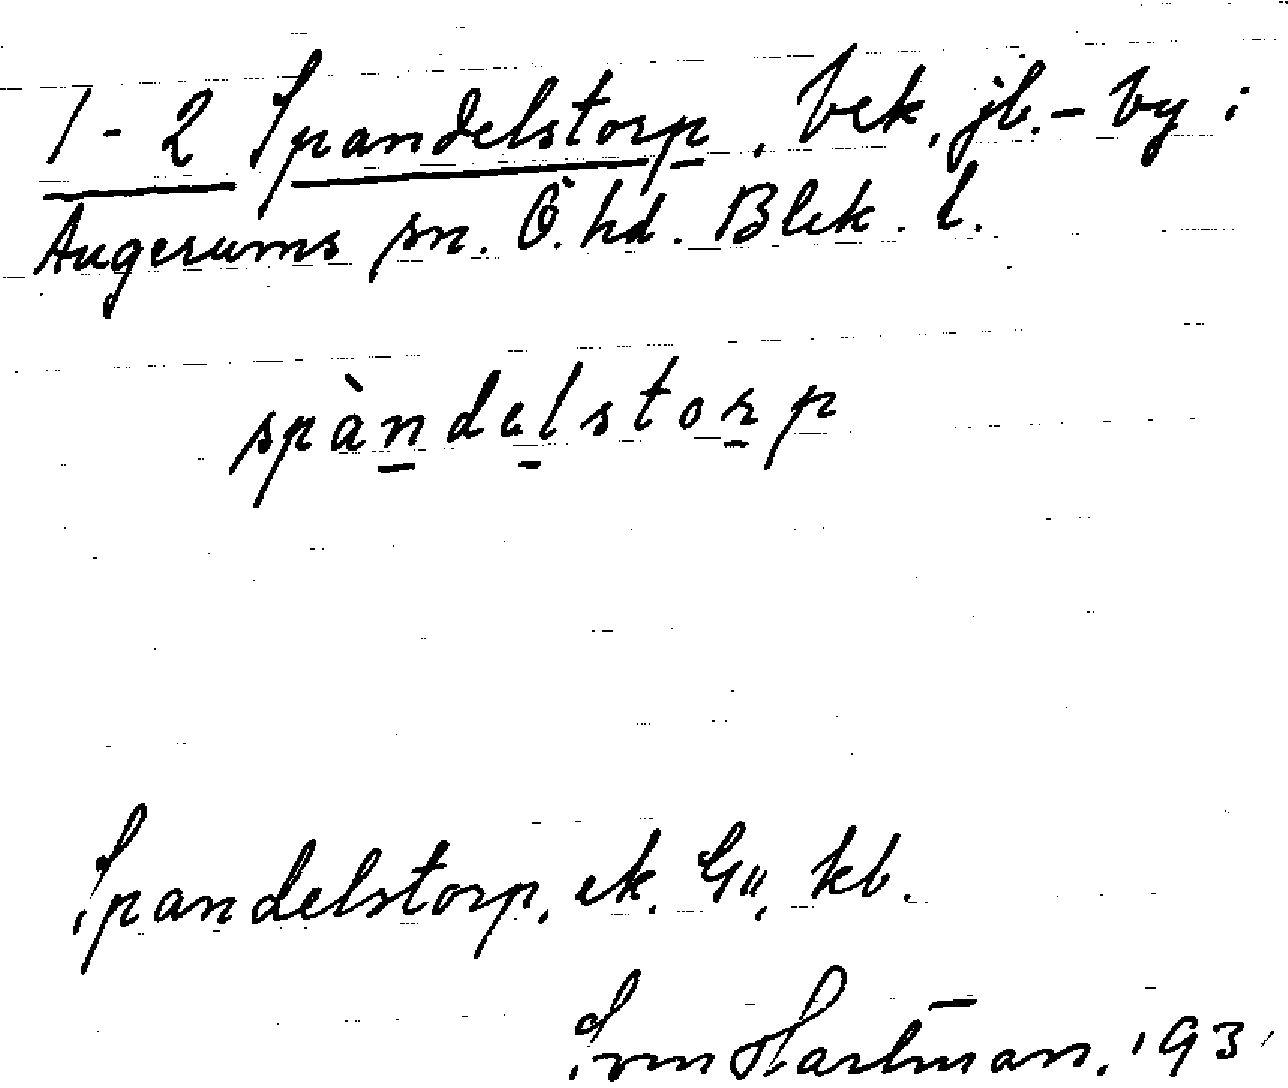 1-2 Spandelstorp, bek. jb.-by i
Augerums sn. Ö. hd. Blek. l.
spàndelstorp
Spandelstorp, ek. Gü, kb.
Hartman, 193